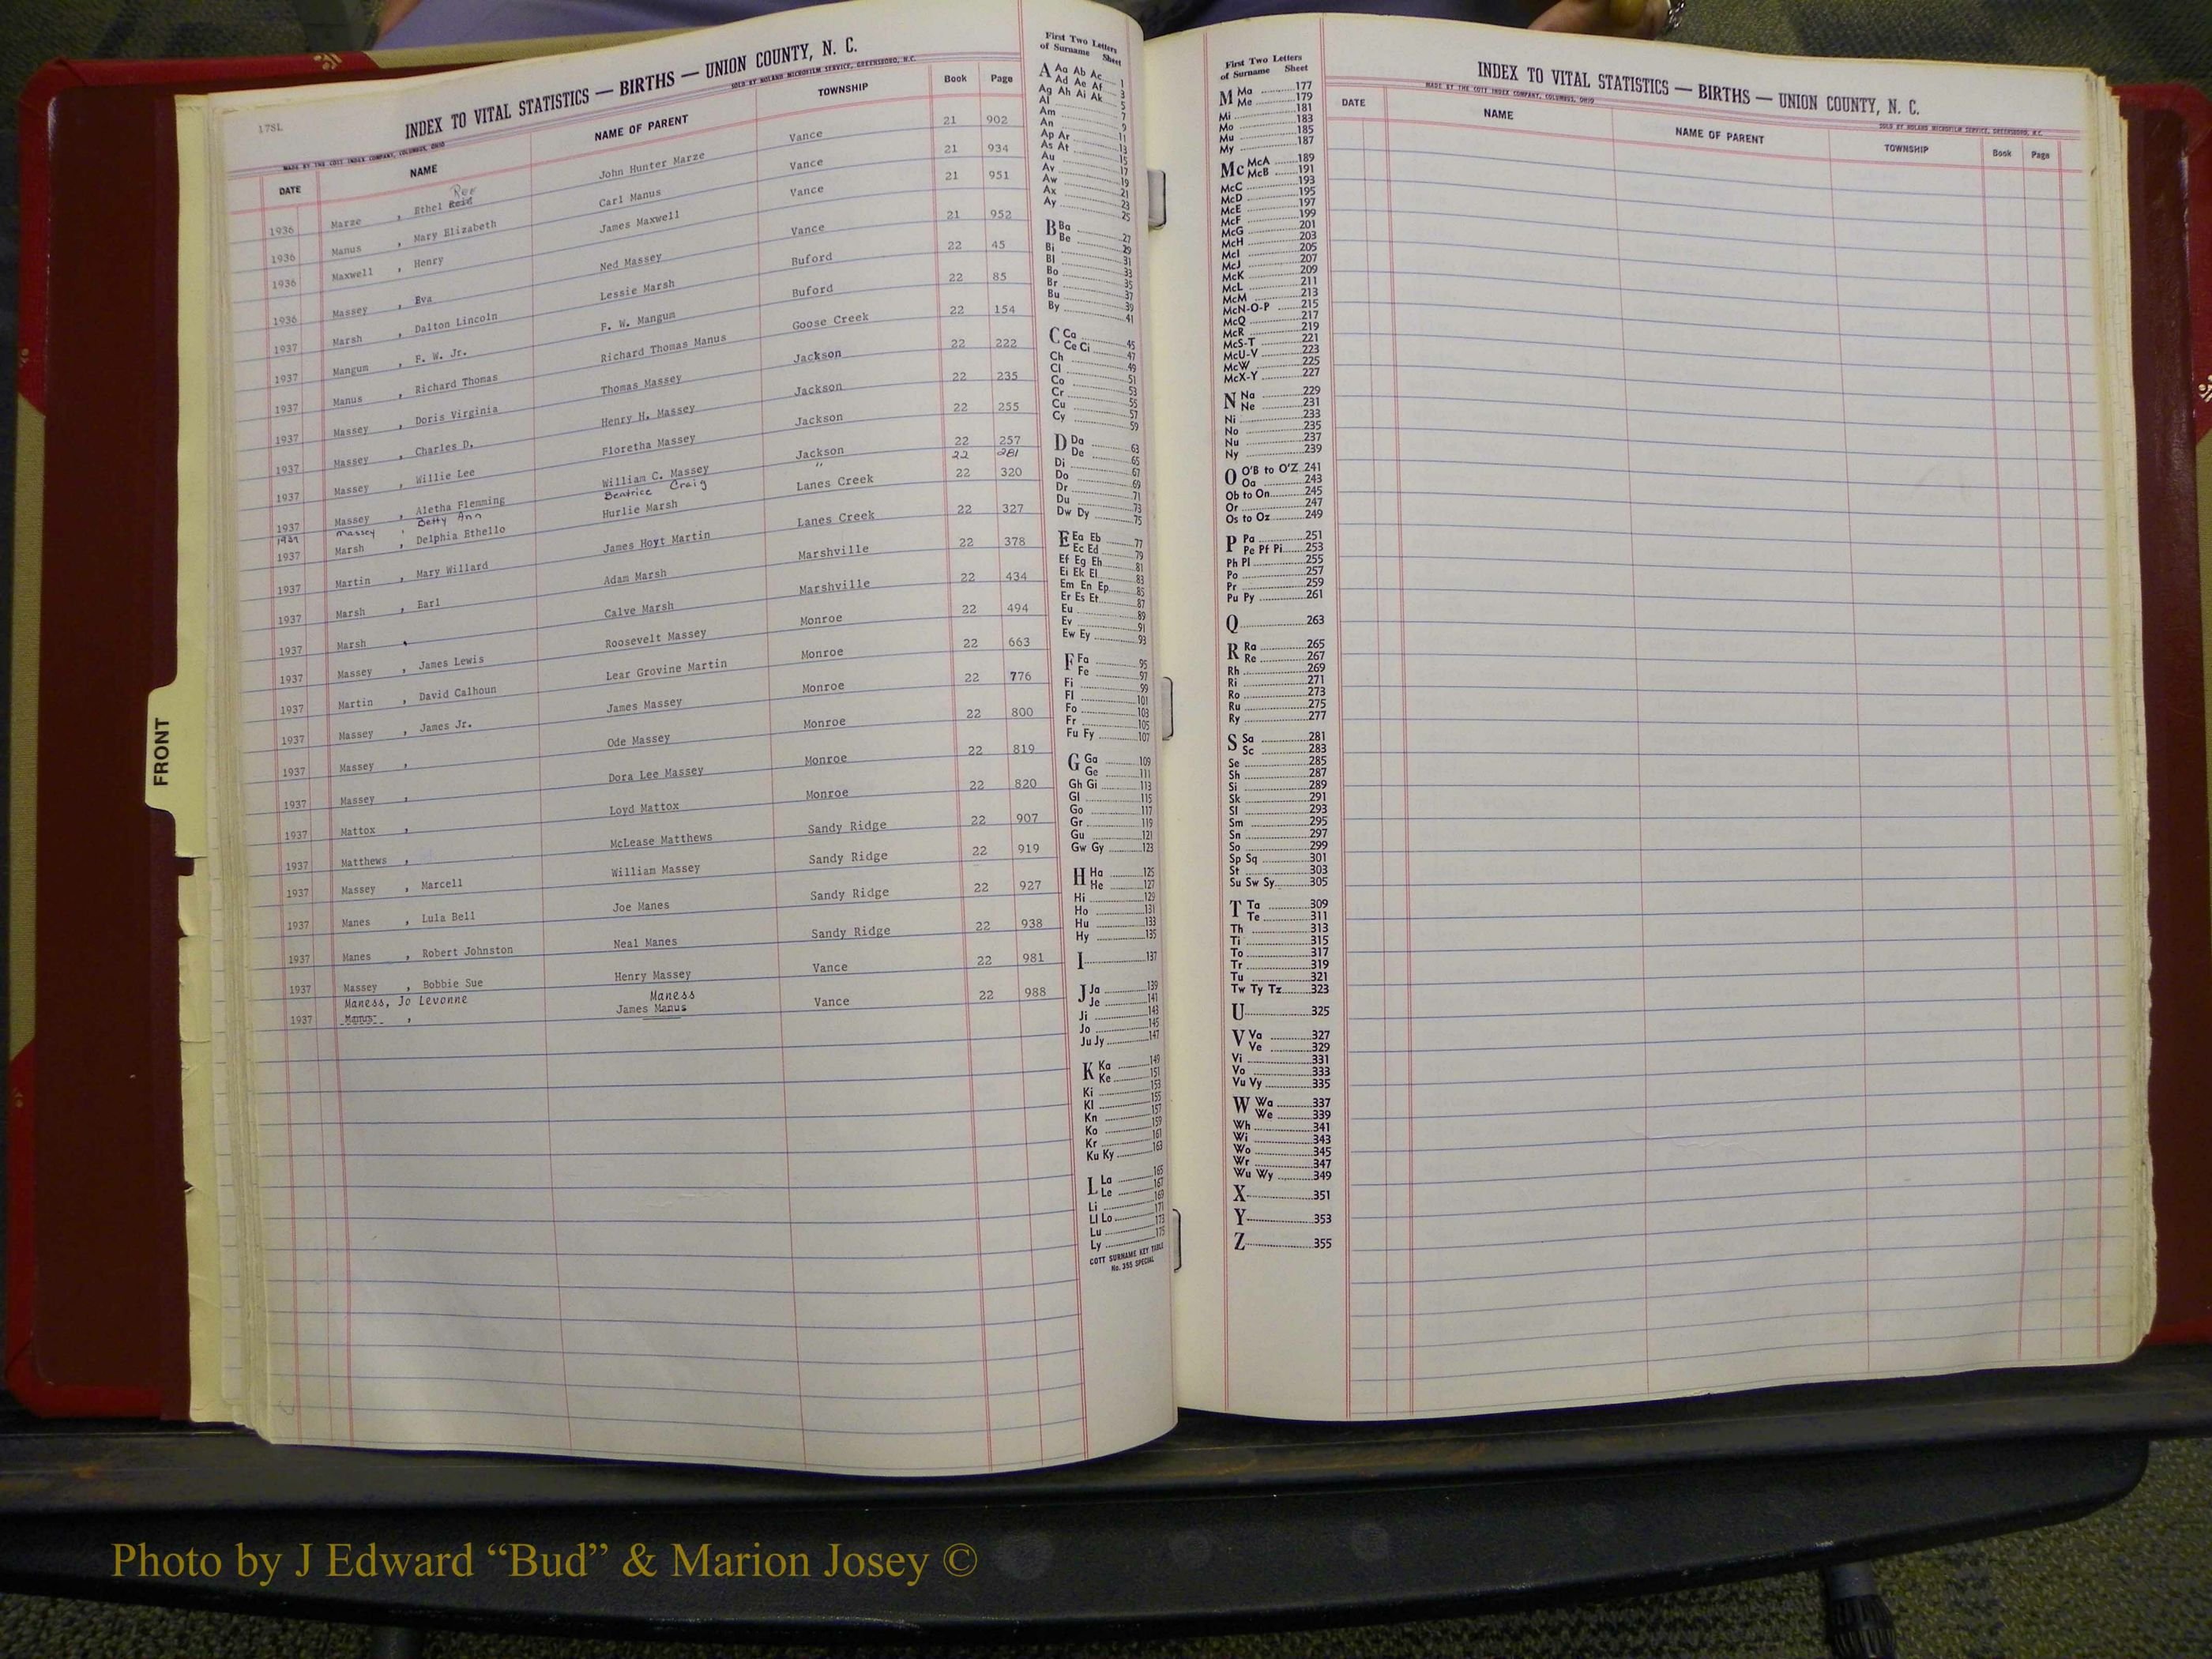 178L
INDEX TO VITAL STATISTICS — BIRTHS — UNION COUNTY, N. C.
MADE BY THE COTT INDEX COMPANY, COLUMBUS, OHIO SOLD BY NOLAND MICROFILM SERVICE, GREENSBORO, N.C.
DATE NAME NAME OF PARENT TOWNSHIP Book Page
1936 Marze , Ethel Reid John Hunter Marze Vance 21 902
1936 Manus , Mary Elizabeth Carl Manus Vance 21 934
1936 Maxwell , Henry James Maxwell Vance 21 951
1936 Massey , Eva Ned Massey Vance 21 952
1937 Marsh , Dalton Lincoln Lessie Marsh Buford 22 45
1937 Mangum , F. W. Jr. F. W. Mangum Buford 22 85
1937 Manus , Richard Thomas Richard Thomas Manus Goose Creek 22 154
1937 Massey , Doris Virginia Thomas Massey Jackson 22 222
1937 Massey , Charles D. Henry H. Massey Jackson 22 235
1937 Massey , Willie Lee Floretha Massey Jackson 22 255
1937 Massey , Aletha Flemming William C. Massey Jackson 22 257
1937 Massey , Betty Ann Beatrice Craig " 22 281
1937 Marsh , Delphia Ethello Hurlie Marsh Lanes Creek 22 320
1937 Martin , Mary Willard James Hoyt Martin Lanes Creek 22 327
1937 Marsh , Earl Adam Marsh Marshville 22 378
1937 Marsh , Calve Marsh Marshville 22 434
1937 Massey , James Lewis Roosevelt Massey Monroe 22 494
1937 Martin , David Calhoun Lear Grovine Martin Monroe 22 663
1937 Massey , James Jr. James Massey Monroe 22 776
1937 Massey , Ode Massey Monroe 22 800
1937 Massey , Dora Lee Massey Monroe 22 819
1937 Mattox , Loyd Mattox Monroe 22 820
1937 Matthews , McLease Matthews Sandy Ridge 22 907
1937 Massey , Marcell William Massey Sandy Ridge 22 919
1937 Manes , Lula Bell Joe Manes Sandy Ridge 22 927
1937 Manes , Robert Johnston Neal Manes Sandy Ridge 22 938
1937 Massey , Bobbie Sue Henry Massey Vance 22 981
Maness, Jo Levonne Maness
1937 Manus , James Manus Vance 22 988
FRONT
First Two Letters
of Surname Sheet
A Aa Ab Ac 1
Ad Ae Af 3
Ag Ah Ai Ak 5
Al 7
Am 9
An 11
Ap Ar 13
As At 15
Au 17
Av 19
Aw 21
Ax 23
Ay 25
B Ba 27
Be 29
Bi 31
Bl 33
Bo 35
Br 37
Bu 39
By 41
C Ca 45
Ce Ci 47
Ch 49
Cl 51
Co 53
Cr 55
Cu 57
Cy 59
D Da 63
De 65
Di 67
Do 69
Dr 71
Du 73
Dw Dy 75
E Ea Eb 77
Ec Ed 79
Ef Eg Eh 81
Ei Ek El 83
Em En Ep 85
Er Es Et 87
Eu 89
Ev 91
Ew Ey 93
F Fa 95
Fe 97
Fi 99
Fl 101
Fo 103
Fr 105
Fu Fy 107
G Ga 109
Ge 111
Gh Gi 113
Gl 115
Go 117
Gr 119
Gu 121
Gw Gy 123
H Ha 125
He 127
Hi 129
Ho 131
Hu 133
Hy 135
I 137
J Ja 139
Je 141
Ji 143
Jo 145
Ju Jy 147
K Ka 149
Ke 151
Ki 153
Kl 155
Kn 157
Ko 159
Kr 161
Ku Ky 163
L La 165
Le 167
Li 169
Ll Lo 171
Lu 173
Ly 175
COTT SURNAME KEY TABLE
No. 355 SPECIAL
First Two Letters
of Surname Sheet
M Ma 177
Me 179
Mi 181
Mo 183
Mu 185
My 187
Mc McA 189
McB 191
McC 193
McD 195
McE 197
McF 199
McG 201
McH 203
McI 205
McJ 207
McK 209
McL 211
McM 213
McN-O-P 215
McQ 217
McR 219
McS-T 221
McU-V 223
McW 225
McX-Y 227
N Na 229
Ne 231
Ni 233
No 235
Nu 237
Ny 239
O O'B to O'Z 241
Oa 243
Ob to On 245
Or 247
Os to Oz 249
P Pa 251
Pe Pf Pi 253
Ph Pl 255
Po 257
Pr 259
Pu Py 261
Q 263
R Ra 265
Re 267
Rh 269
Ri 271
Ro 273
Ru 275
Ry 277
S Sa 281
Sc 283
Se 285
Sh 287
Si 289
Sk 291
Sl 293
Sm 295
Sn 297
So 299
Sp Sq 301
St 303
Su Sw Sy 305
T Ta 309
Te 311
Th 313
Ti 315
To 317
Tr 319
Tu 321
Tw Ty Tz 323
U 325
V Va 327
Ve 329
Vi 331
Vo 333
Vu Vy 335
W Wa 337
We 339
Wh 341
Wi 343
Wo 345
Wr 347
Wu Wy 349
X 351
Y 353
Z 355
INDEX TO VITAL STATISTICS — BIRTHS — UNION COUNTY, N. C.
MADE BY THE COTT INDEX COMPANY, COLUMBUS, OHIO SOLD BY NOLAND MICROFILM SERVICE, GREENSBORO, N.C.
DATE NAME NAME OF PARENT TOWNSHIP Book Page
Photo by J Edward “Bud” & Marion Josey ©